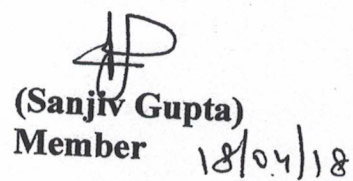 (Sanjiv Gupta)
Member 18/04/18